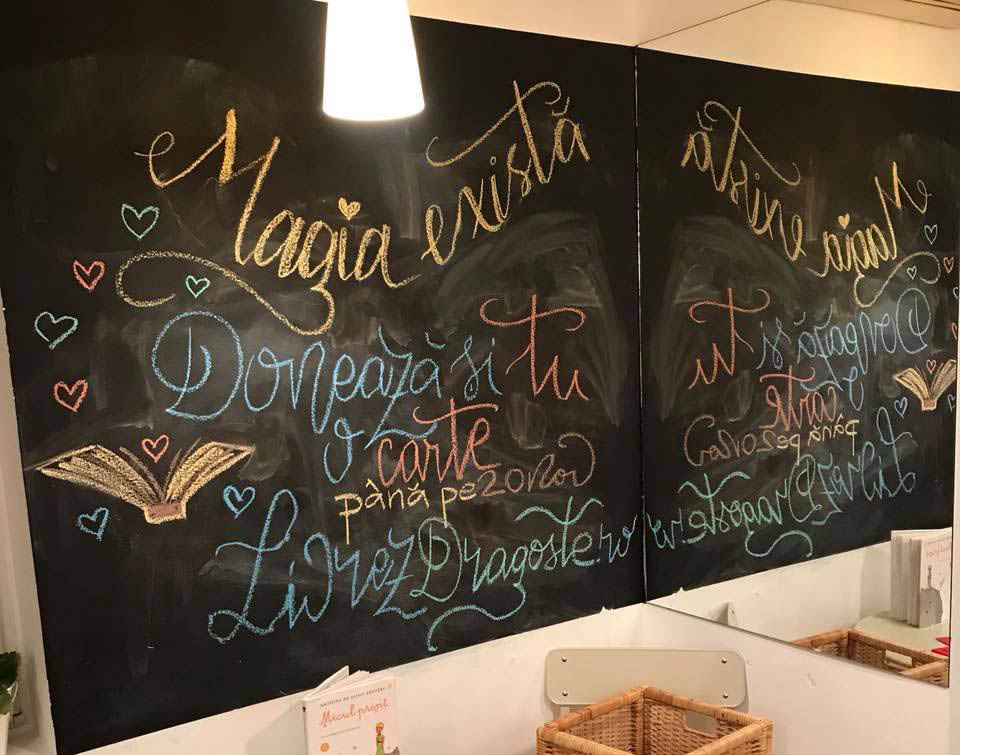 Magia există
Donează și tu
o carte
până pe 20 Nov
LivrezDragoste.ro
ANTOINE DE SAINT-EXUPÉRY
Micul prinț